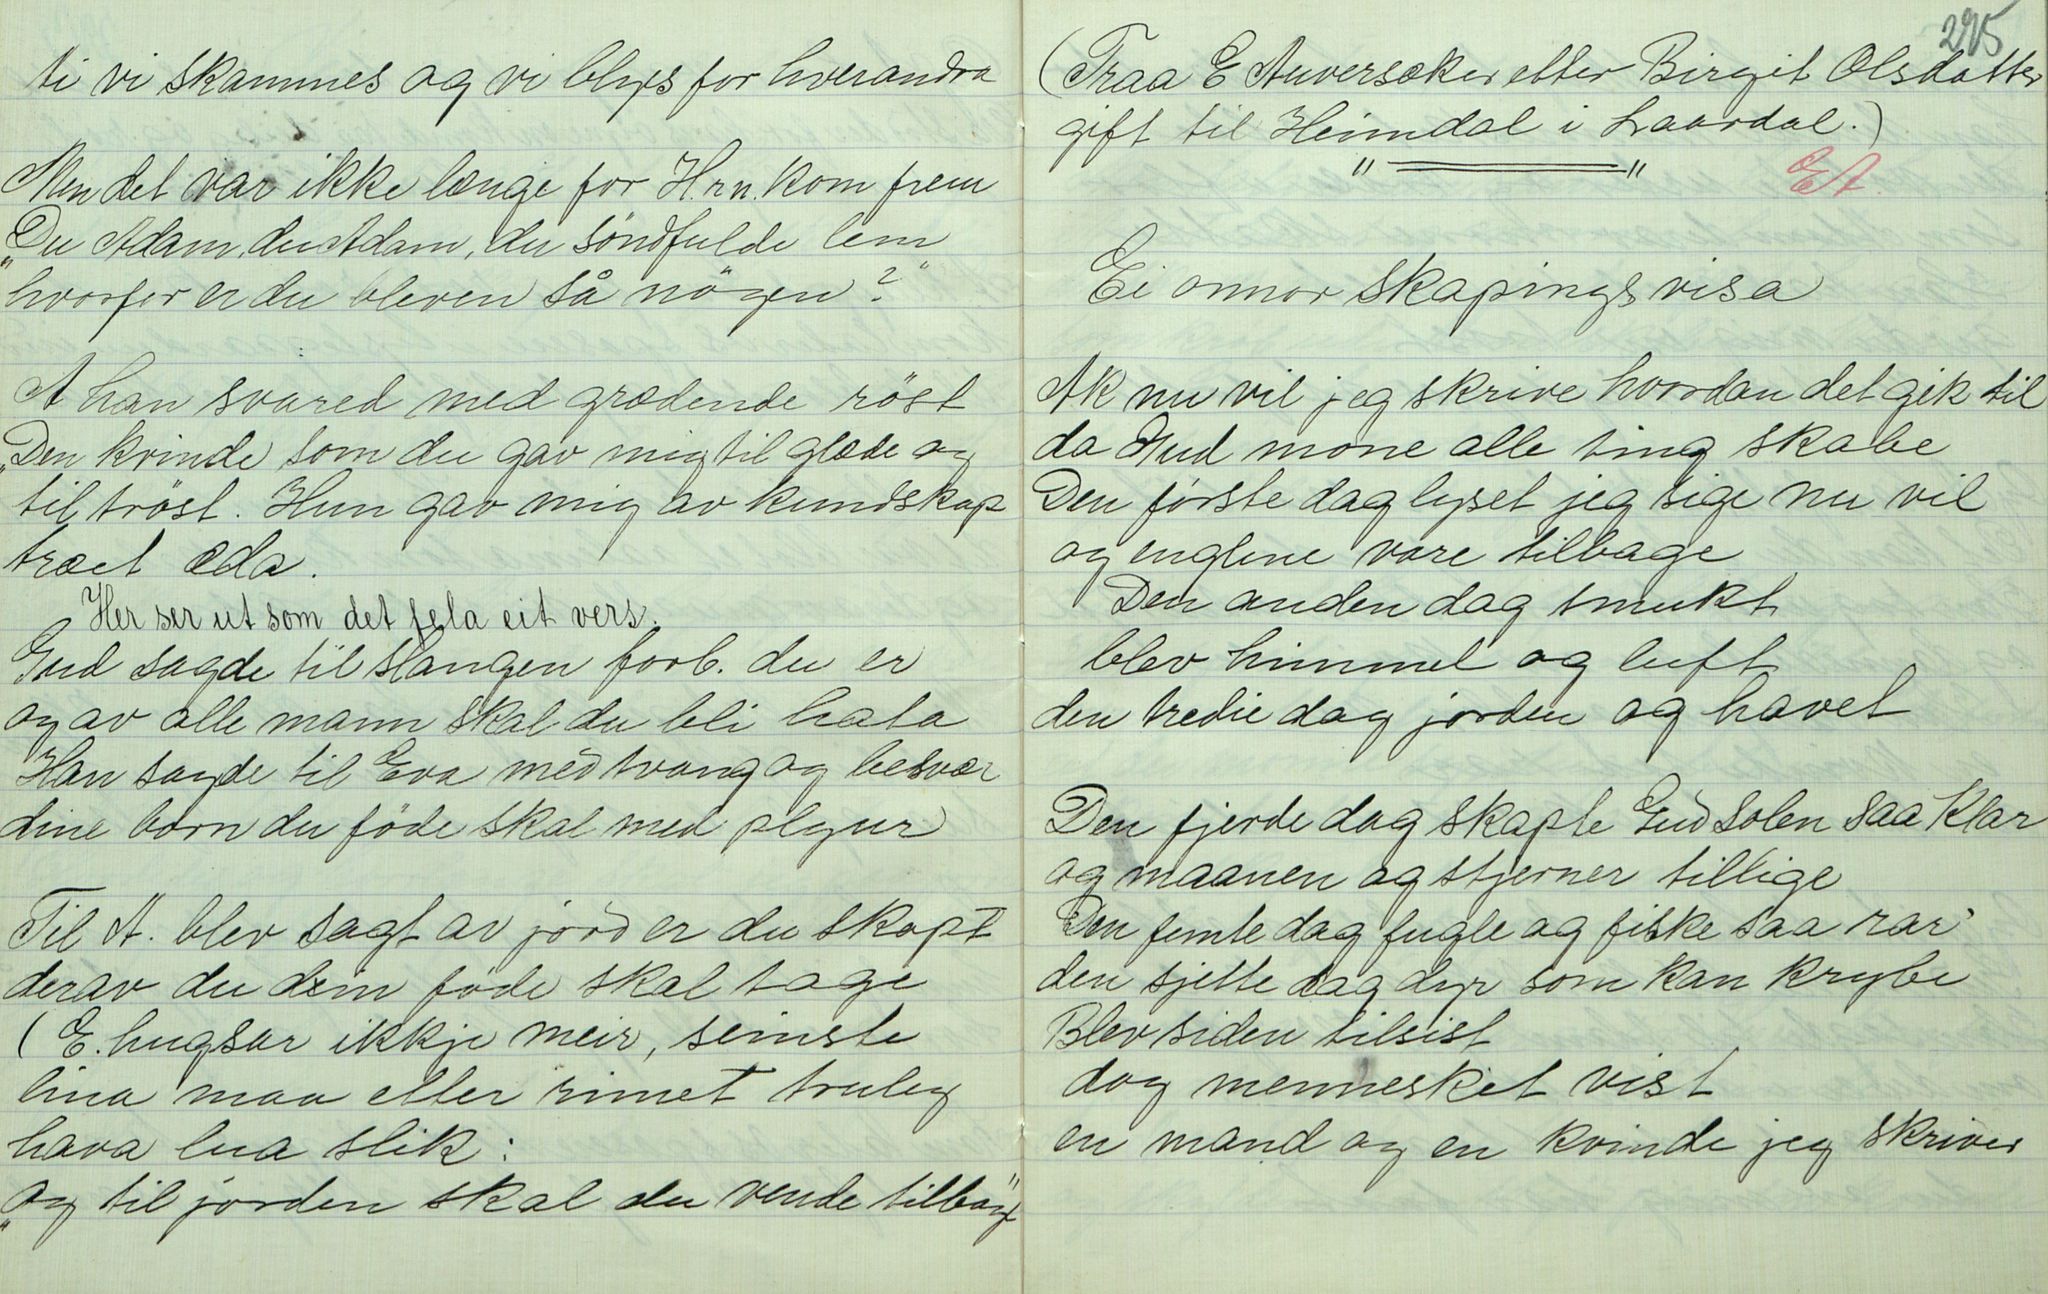 ti vi skammes og vi blyes for hverandra
Men det var ikke længe for H.r.n. kom frem
„Du Adam, du Adam, du söndfulde lem
hvorfor er du bleven så nögen?"
A han svared med grædende röst
„Den kvinde som du gav mig til glæde og
til tröst. Hun gav mig av kundskap
træet æda.
Her ser ut som det fela eit vers.
Gud sagde til slangen forb. du er
og av alle mann skal du bli hata
Han sagde til Eva med tvang og besvær
dine born du föde skal med plyur
Til A. blev sagt av jord er du skapt
derav du dein föde skal tage
(E. hugsar ikkje meir, seinste
lina maa etter rimet truleg
hava lua slik:
„og til jorden skal du vende tilbag"
295
(Fraa E Anversøker etter Birgit Olsdotter
gift til Heimdal i Laardal.)
" "
EA.
Ei onnor skapingsvisa
Ak nu vil jeg skrive hvordan det gik til
da Gud mone alle ting skabe
Den første dag lyset jeg sige nu vil
og englene vare tilbage
Den anden dag smukt
blev himmel og luft
den tredie dag jorden og havet
Den fjerde dag skapte Gud solen saa klar
og maanen og stjerner tillige
Den femte dag fugle og fiske saa rar
den sjette dag dyr som kan krybe
Blev siden tilsist
dog mennesket vist
en mand og en kvinde jeg skriver